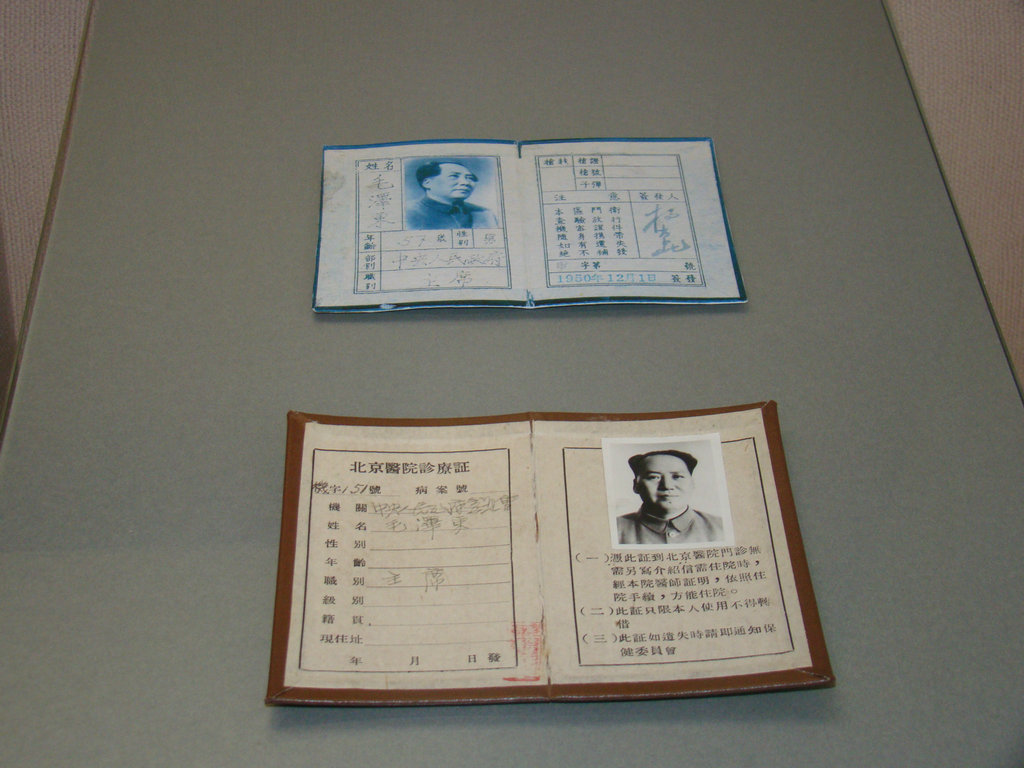 姓名
毛澤東
年齡 57 歲 性別 男
部別 中央人民政府
職別 主席
槍裝 槍證
槍號
子彈
注意 簽發人
本區門衛
查驗放行
機密證件
隨身攜帶
如有遺失
絕不補發
字第 號
1950年12月1日 簽發
北京醫院診療証
機字151號 病案號
機關 中央人民政府委員會
姓名 毛澤東
性別
年齡
職別 主席
級別
籍貫
現住址
年 月 日發
(一)憑此証到北京醫院門診無
需另寫介紹信需住院時，
經本院醫師証明，依照住
院手續，方能住院。
(二)此証只限本人使用不得轉
借
(三)此証如遺失時請即通知保
健委員會